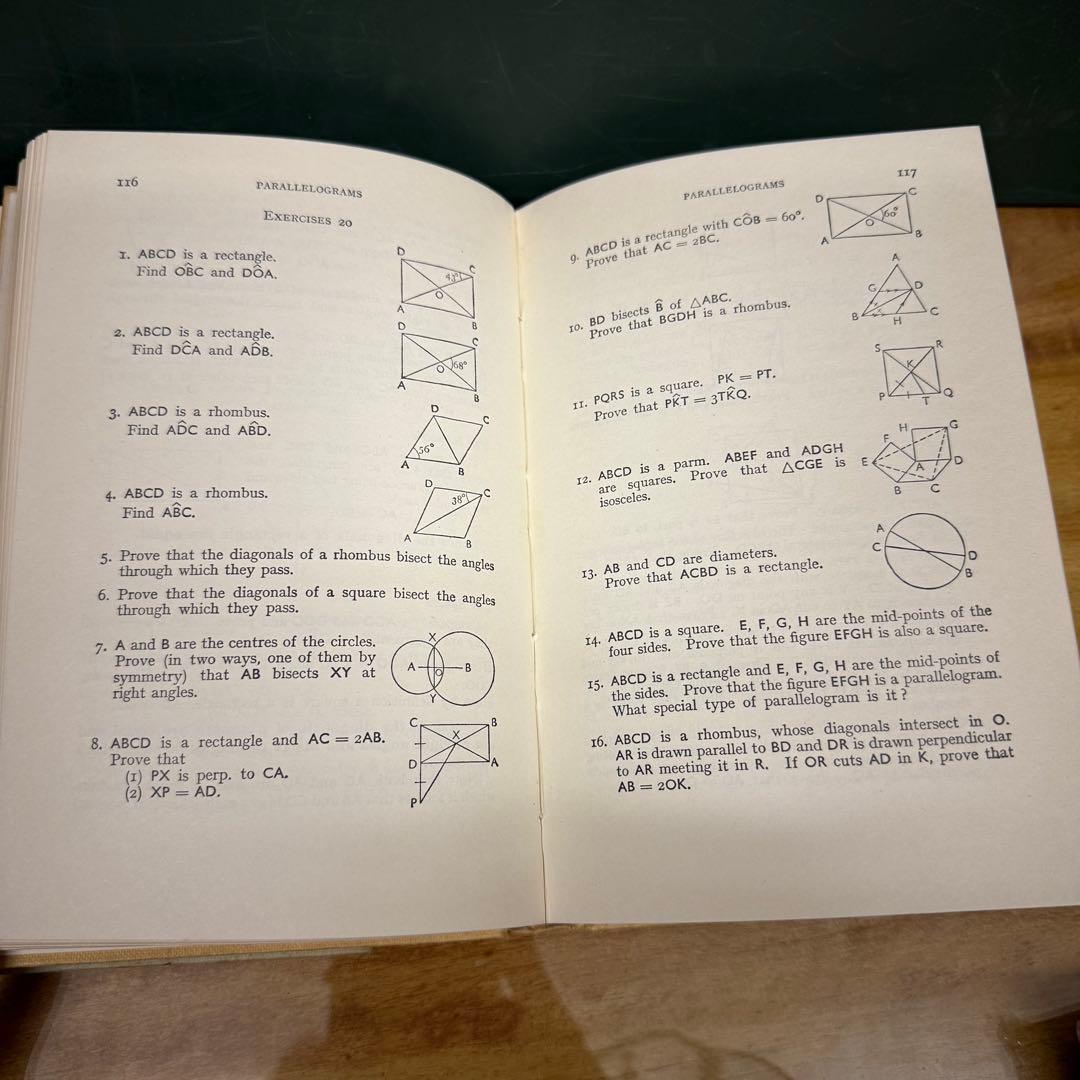 116
PARALLELOGRAMS
EXERCISES 20
1. ABCD is a rectangle.
Find OB̂C and DÔA.
D
C
43°
O
A
B
2. ABCD is a rectangle.
Find DĈA and AD̂B.
D
C
O
68°
A
B
3. ABCD is a rhombus.
Find AD̂C and AB̂D.
D
C
56°
A
B
4. ABCD is a rhombus.
Find AB̂C.
D
C
38°
A
B
5. Prove that the diagonals of a rhombus bisect the angles
through which they pass.
6. Prove that the diagonals of a square bisect the angles
through which they pass.
7. A and B are the centres of the circles.
Prove (in two ways, one of them by
symmetry) that AB bisects XY at
right angles.
X
A
O
B
Y
8. ABCD is a rectangle and AC = 2AB.
Prove that
(1) PX is perp. to CA.
(2) XP = AD.
C
B
X
D
A
P
PARALLELOGRAMS
117
9. ABCD is a rectangle with CÔB = 60°.
Prove that AC = 2BC.
D
C
O
60°
A
B
10. BD bisects B̂ of △ABC.
Prove that BGDH is a rhombus.
A
G
D
B
H
C
11. PQRS is a square. PK = PT.
Prove that PK̂T = 3TK̂Q.
S
R
K
P
T
Q
12. ABCD is a parm. ABEF and ADGH
are squares. Prove that △CGE is
isosceles.
H
G
F
E
A
D
B
C
13. AB and CD are diameters.
Prove that ACBD is a rectangle.
A
C
D
B
14. ABCD is a square. E, F, G, H are the mid-points of the
four sides. Prove that the figure EFGH is also a square.
15. ABCD is a rectangle and E, F, G, H are the mid-points of
the sides. Prove that the figure EFGH is a parallelogram.
What special type of parallelogram is it?
16. ABCD is a rhombus, whose diagonals intersect in O.
AR is drawn parallel to BD and DR is drawn perpendicular
to AR meeting it in R. If OR cuts AD in K, prove that
AB = 2OK.